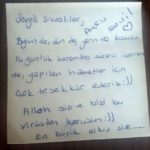 Sevgili Sivaslılar,
Bugün de, dün de, yarın da
14 günlük karantina süresi içerisin
de, yapılan hizmetler için
çok teşekkür ederiz :))
Allah sizi ve bizi bu
virüsten korusun :))
En büyük alkış size